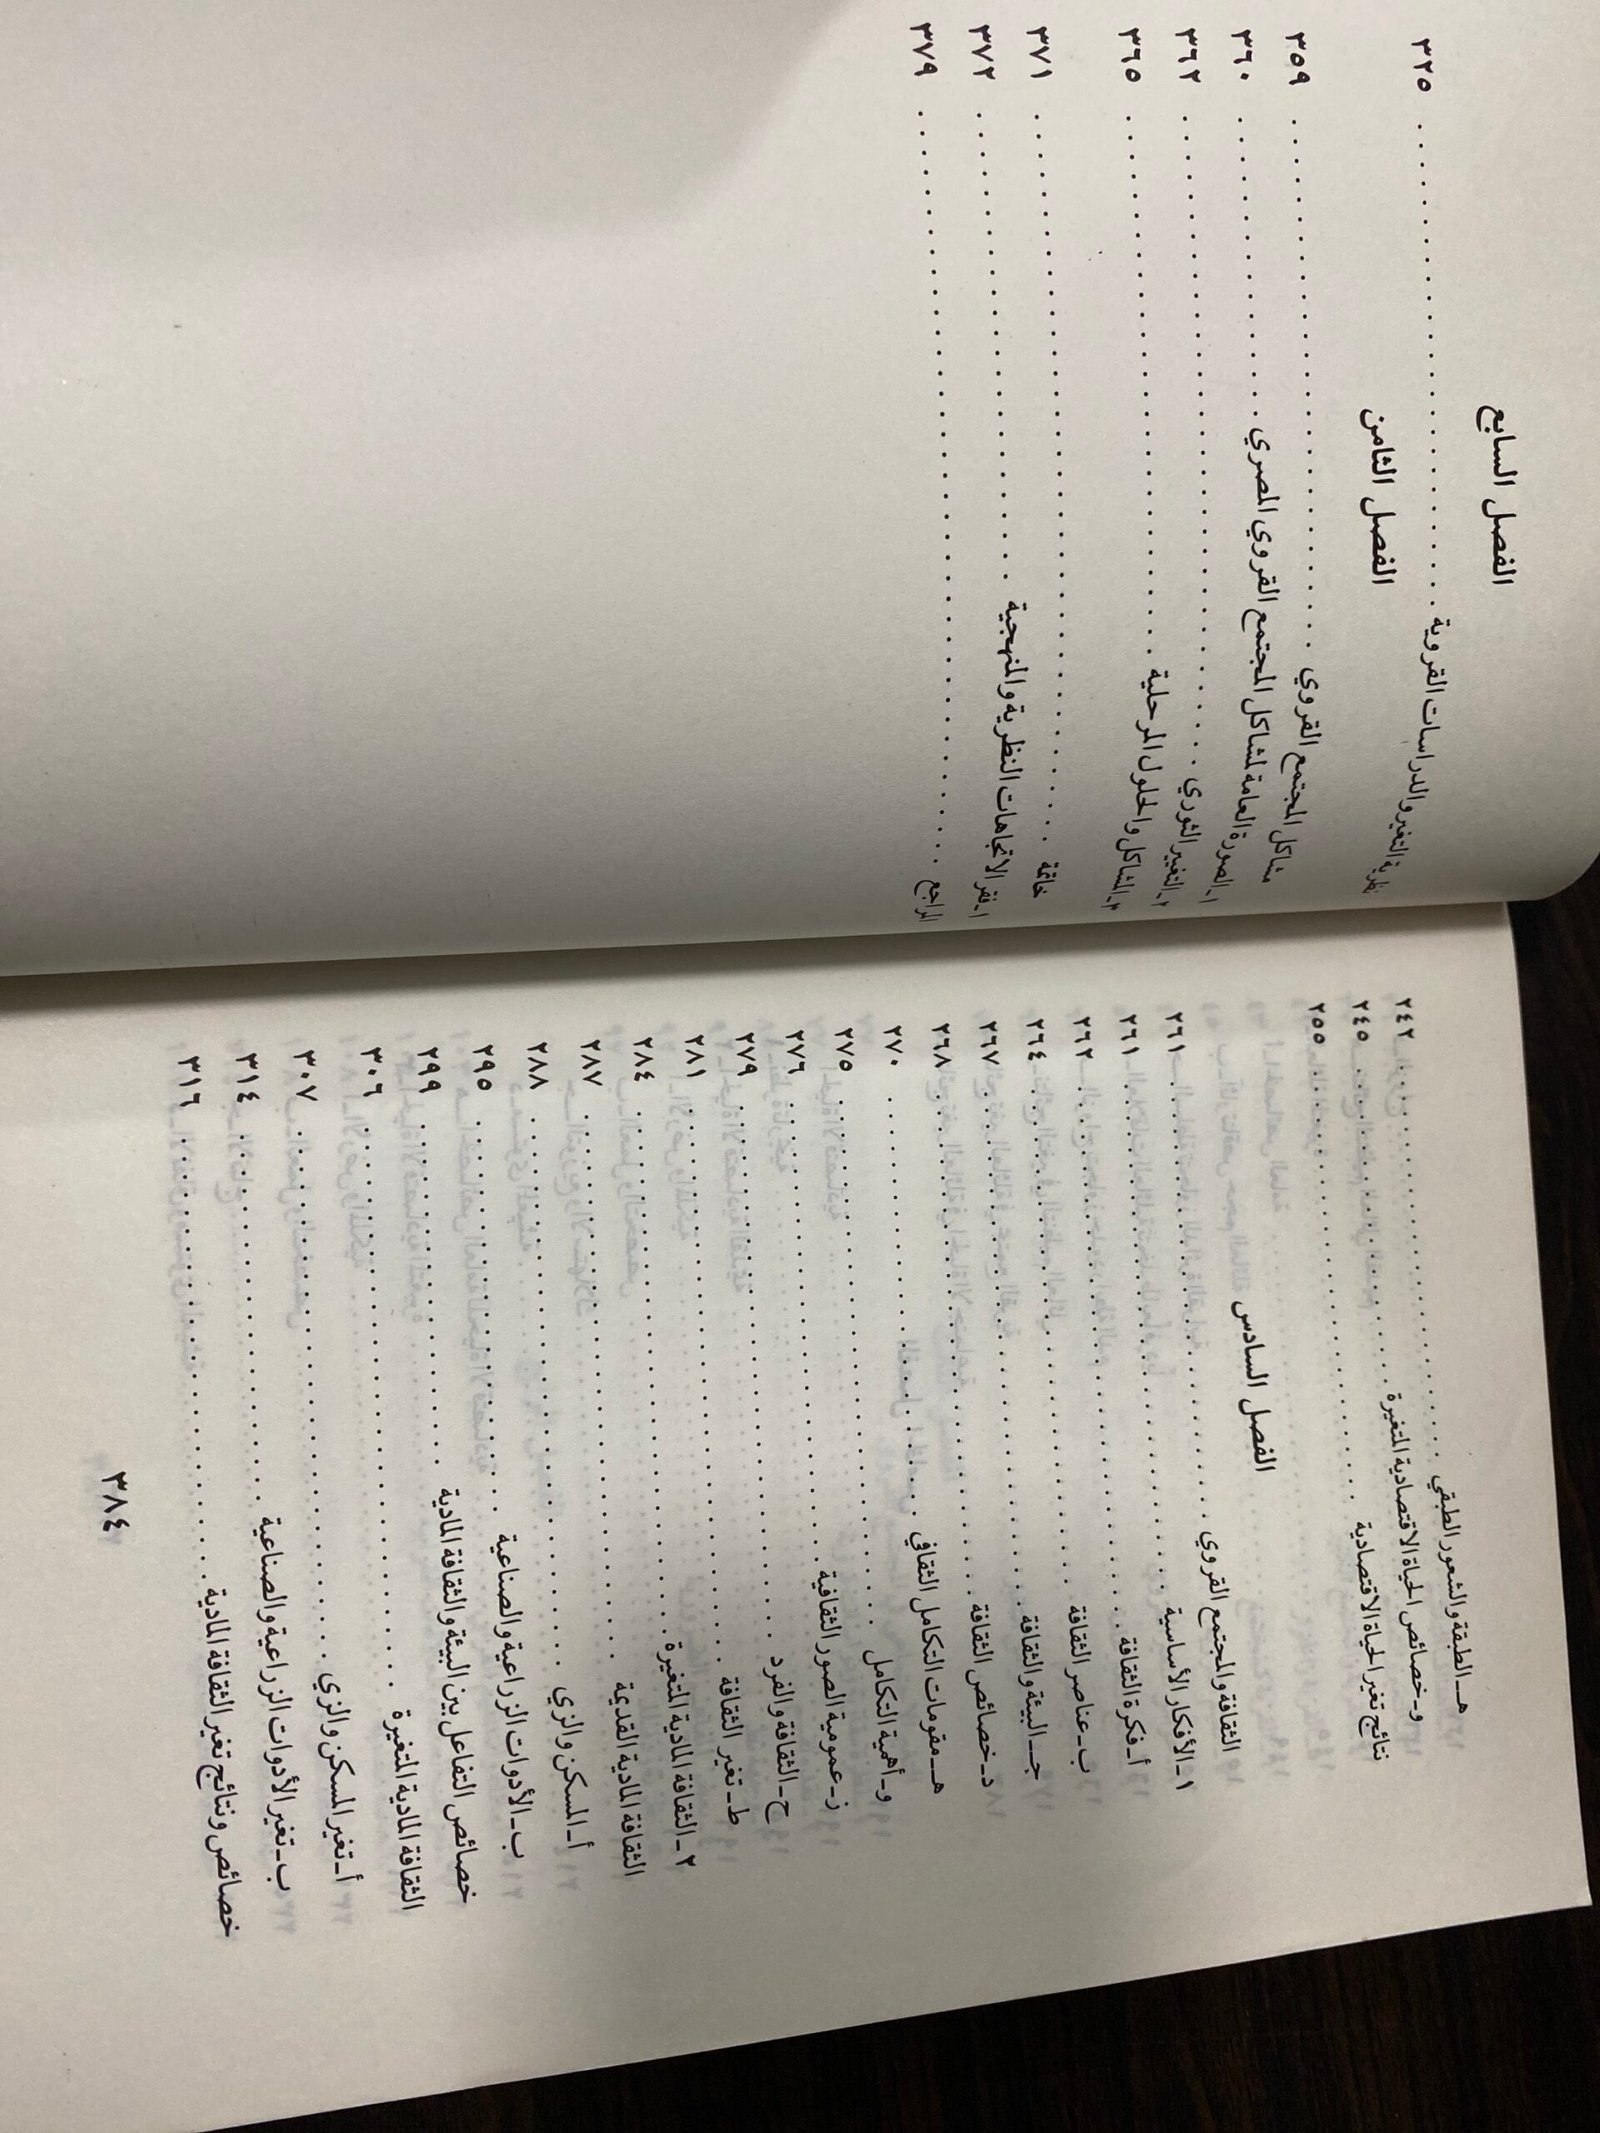 هـ ـ الطبقة والشعور الطبقي ٢٤٢
و ـ خصائص الحياة الاقتصادية المتغيرة ٢٤٥
نتائج تغير الحياة الاقتصادية ٢٥٥
الفصل السادس
الثقافة والمجتمع القروي ٢٦١
١ ـ الأفكار الأساسية ٢٦١
أ ـ فكرة الثقافة ٢٦٢
ب ـ عناصر الثقافة ٢٦٤
جـ ـ البيئة والثقافة ٢٦٧
د ـ خصائص الثقافة ٢٦٨
هـ ـ مقومات التكامل الثقافي ٢٧٠
و ـ أهمية التكامل ٢٧٥
ز ـ عمومية الصور الثقافية ٢٧٦
ح ـ الثقافة والفرد ٢٧٩
ط ـ تغير الثقافة ٢٨١
٢ ـ الثقافة المادية المتغيرة ٢٨٤
الثقافة المادية القديمة ٢٨٧
أ ـ المسكن والزي ٢٨٨
ب ـ الأدوات الزراعية والصناعية ٢٩٥
خصائص التفاعل بين البيئة والثقافة المادية ٢٩٩
الثقافة المادية المتغيرة ٣٠٦
أ ـ تغير المسكن والزي ٣٠٧
ب ـ تغير الأدوات الزراعية والصناعية ٣١٤
خصائص ونتائج تغير الثقافة المادية ٣١٦
٣٨٤
الفصل السابع
نظرية التغير والدراسات القروية ٣٢٥
الفصل الثامن
مشاكل المجتمع القروي ٣٥٩
١ ـ الصورة العامة لمشاكل المجتمع القروي المصري ٣٦٠
٢ ـ التغيير الثوري ٣٦٢
٣ ـ المشاكل والحلول المرحلية ٣٦٥
خاتمة ٣٧١
١ ـ فقر الاتجاهات النظرية والمنهجية ٣٧٢
المراجع ٣٧٩